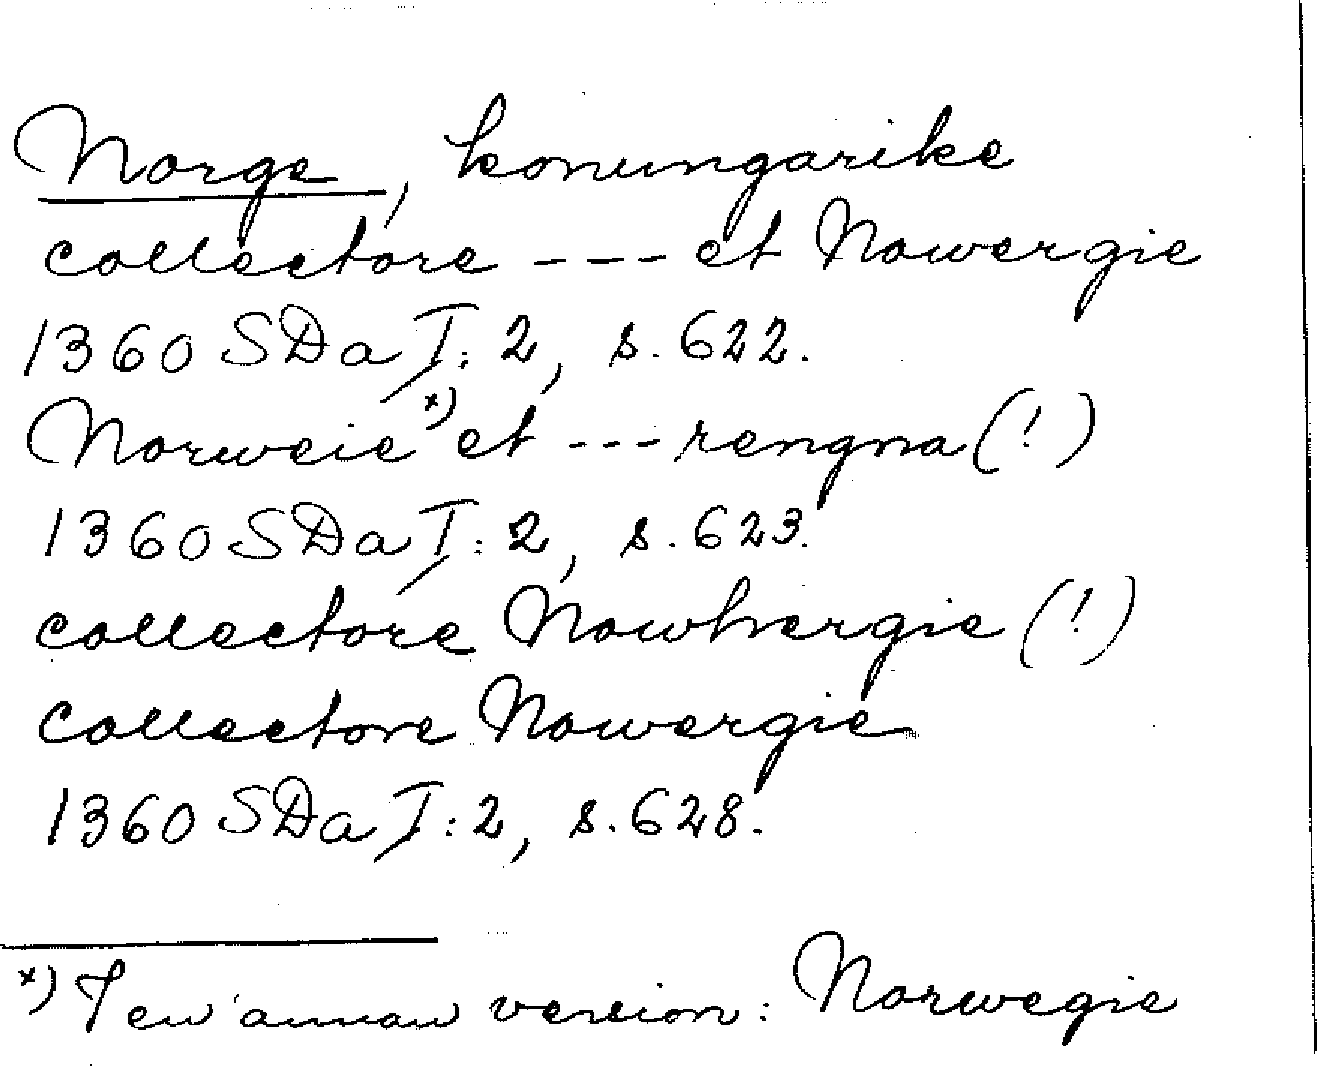 Norge, konungarike
collectore --- et Nowergie
1360 SDa I:2, s. 622.
Norweie x) et --- rengna (!)
1360 SDa I:2, s. 623.
collectore Nowhergie (!)
collectore Nowergie
1360 SDa I:2, s. 628.
x) I en annan version: Norwegie